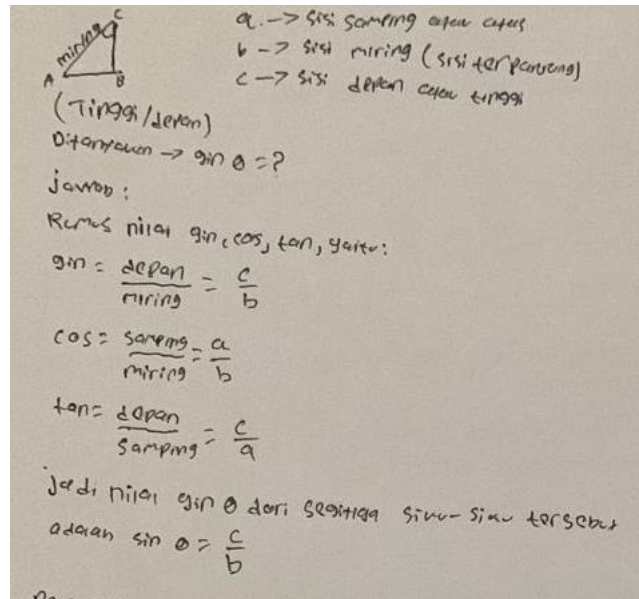 C
miring
A
B
a. -> sisi samping atau
b -> sisi miring (sisi terpanjang)
c -> sisi depan atau tinggi
(Tinggi/depan)
Ditanyakan -> sin θ = ?
jawab :
Rumus nilai sin, cos, tan, yaitu:
sin = depan/miring = c/b
cos = samping/miring = a/b
tan = depan/samping = c/a
jadi nilai sin θ dari segitiga siku-siku tersebut
adalah sin θ = c/b